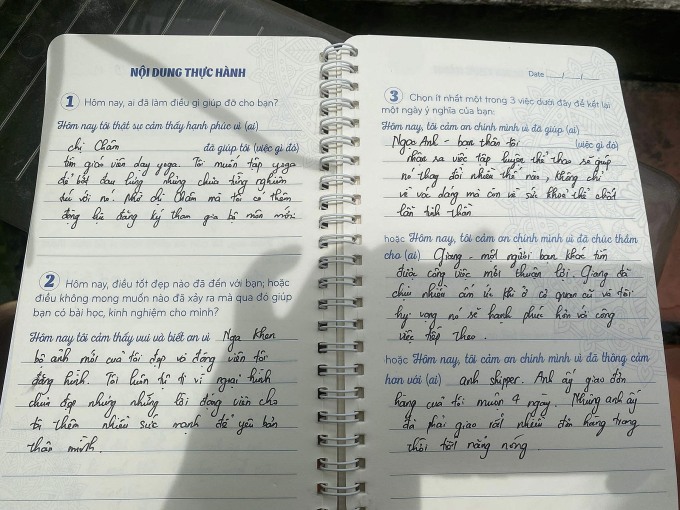 NỘI DUNG THỰC HÀNH
1 Hôm nay, ai đã làm điều gì giúp đỡ cho bạn?
Hôm nay tôi thật sự cảm thấy hạnh phúc vì (ai)
chị Chấn đã giúp tôi (việc gì đó)
tìm giáo viên dạy yoga. Tôi muốn tập yoga
để bắt đầu từng nhưng chưa từng nghiêm
túi với nó. Nhờ chị Chấn mà tôi có thêm
động lực đăng ký tham gia bộ môn mới.
2 Hôm nay, điều tốt đẹp nào đã đến với bạn; hoặc
điều không mong muốn nào đã xảy ra mà qua đó giúp
bạn có bài học, kinh nghiệm cho mình?
Hôm nay tôi cảm thấy vui và biết ơn vì Nga khen
bộ ảnh mới của tôi đẹp và động viên tôi
đăng hình. Tôi luôn tự ti vì ngoại hình
chưa đẹp nhưng những lời động viên cho
tôi thêm nhiều sức mạnh để yêu bản
thân mình.
Date / /
3 Chọn ít nhất một trong 3 việc dưới đây để kết lại
một ngày ý nghĩa của bạn:
Hôm nay, tôi cảm ơn chính mình vì đã giúp (ai)
Ngọc Anh - bạn thân tôi (việc gì đó)
nhận ra việc tập luyện thể thao sẽ giúp
nó thay đổi nhiều thế nào, không chỉ
về vóc dáng mà còn về sức khoẻ thể chất
lẫn tinh thần
hoặc Hôm nay, tôi cảm ơn chính mình vì đã chúc thầm
cho (ai) Giang - một người bạn khác tìm
được công việc mới thuận lợi. Giang đã
chịu nhiều ấm ức khi ở cơ quan cũ và tôi
hy vọng nó sẽ hạnh phúc hơn với công
việc tiếp theo.
hoặc Hôm nay, tôi cảm ơn chính mình vì đã thông cảm
hơn với (ai) anh shipper. Anh ấy giao đơn
hàng của tôi muộn 4 ngày. Nhưng anh ấy
đã phải giao rất nhiều đơn hàng trong
thời tiết nắng nóng.